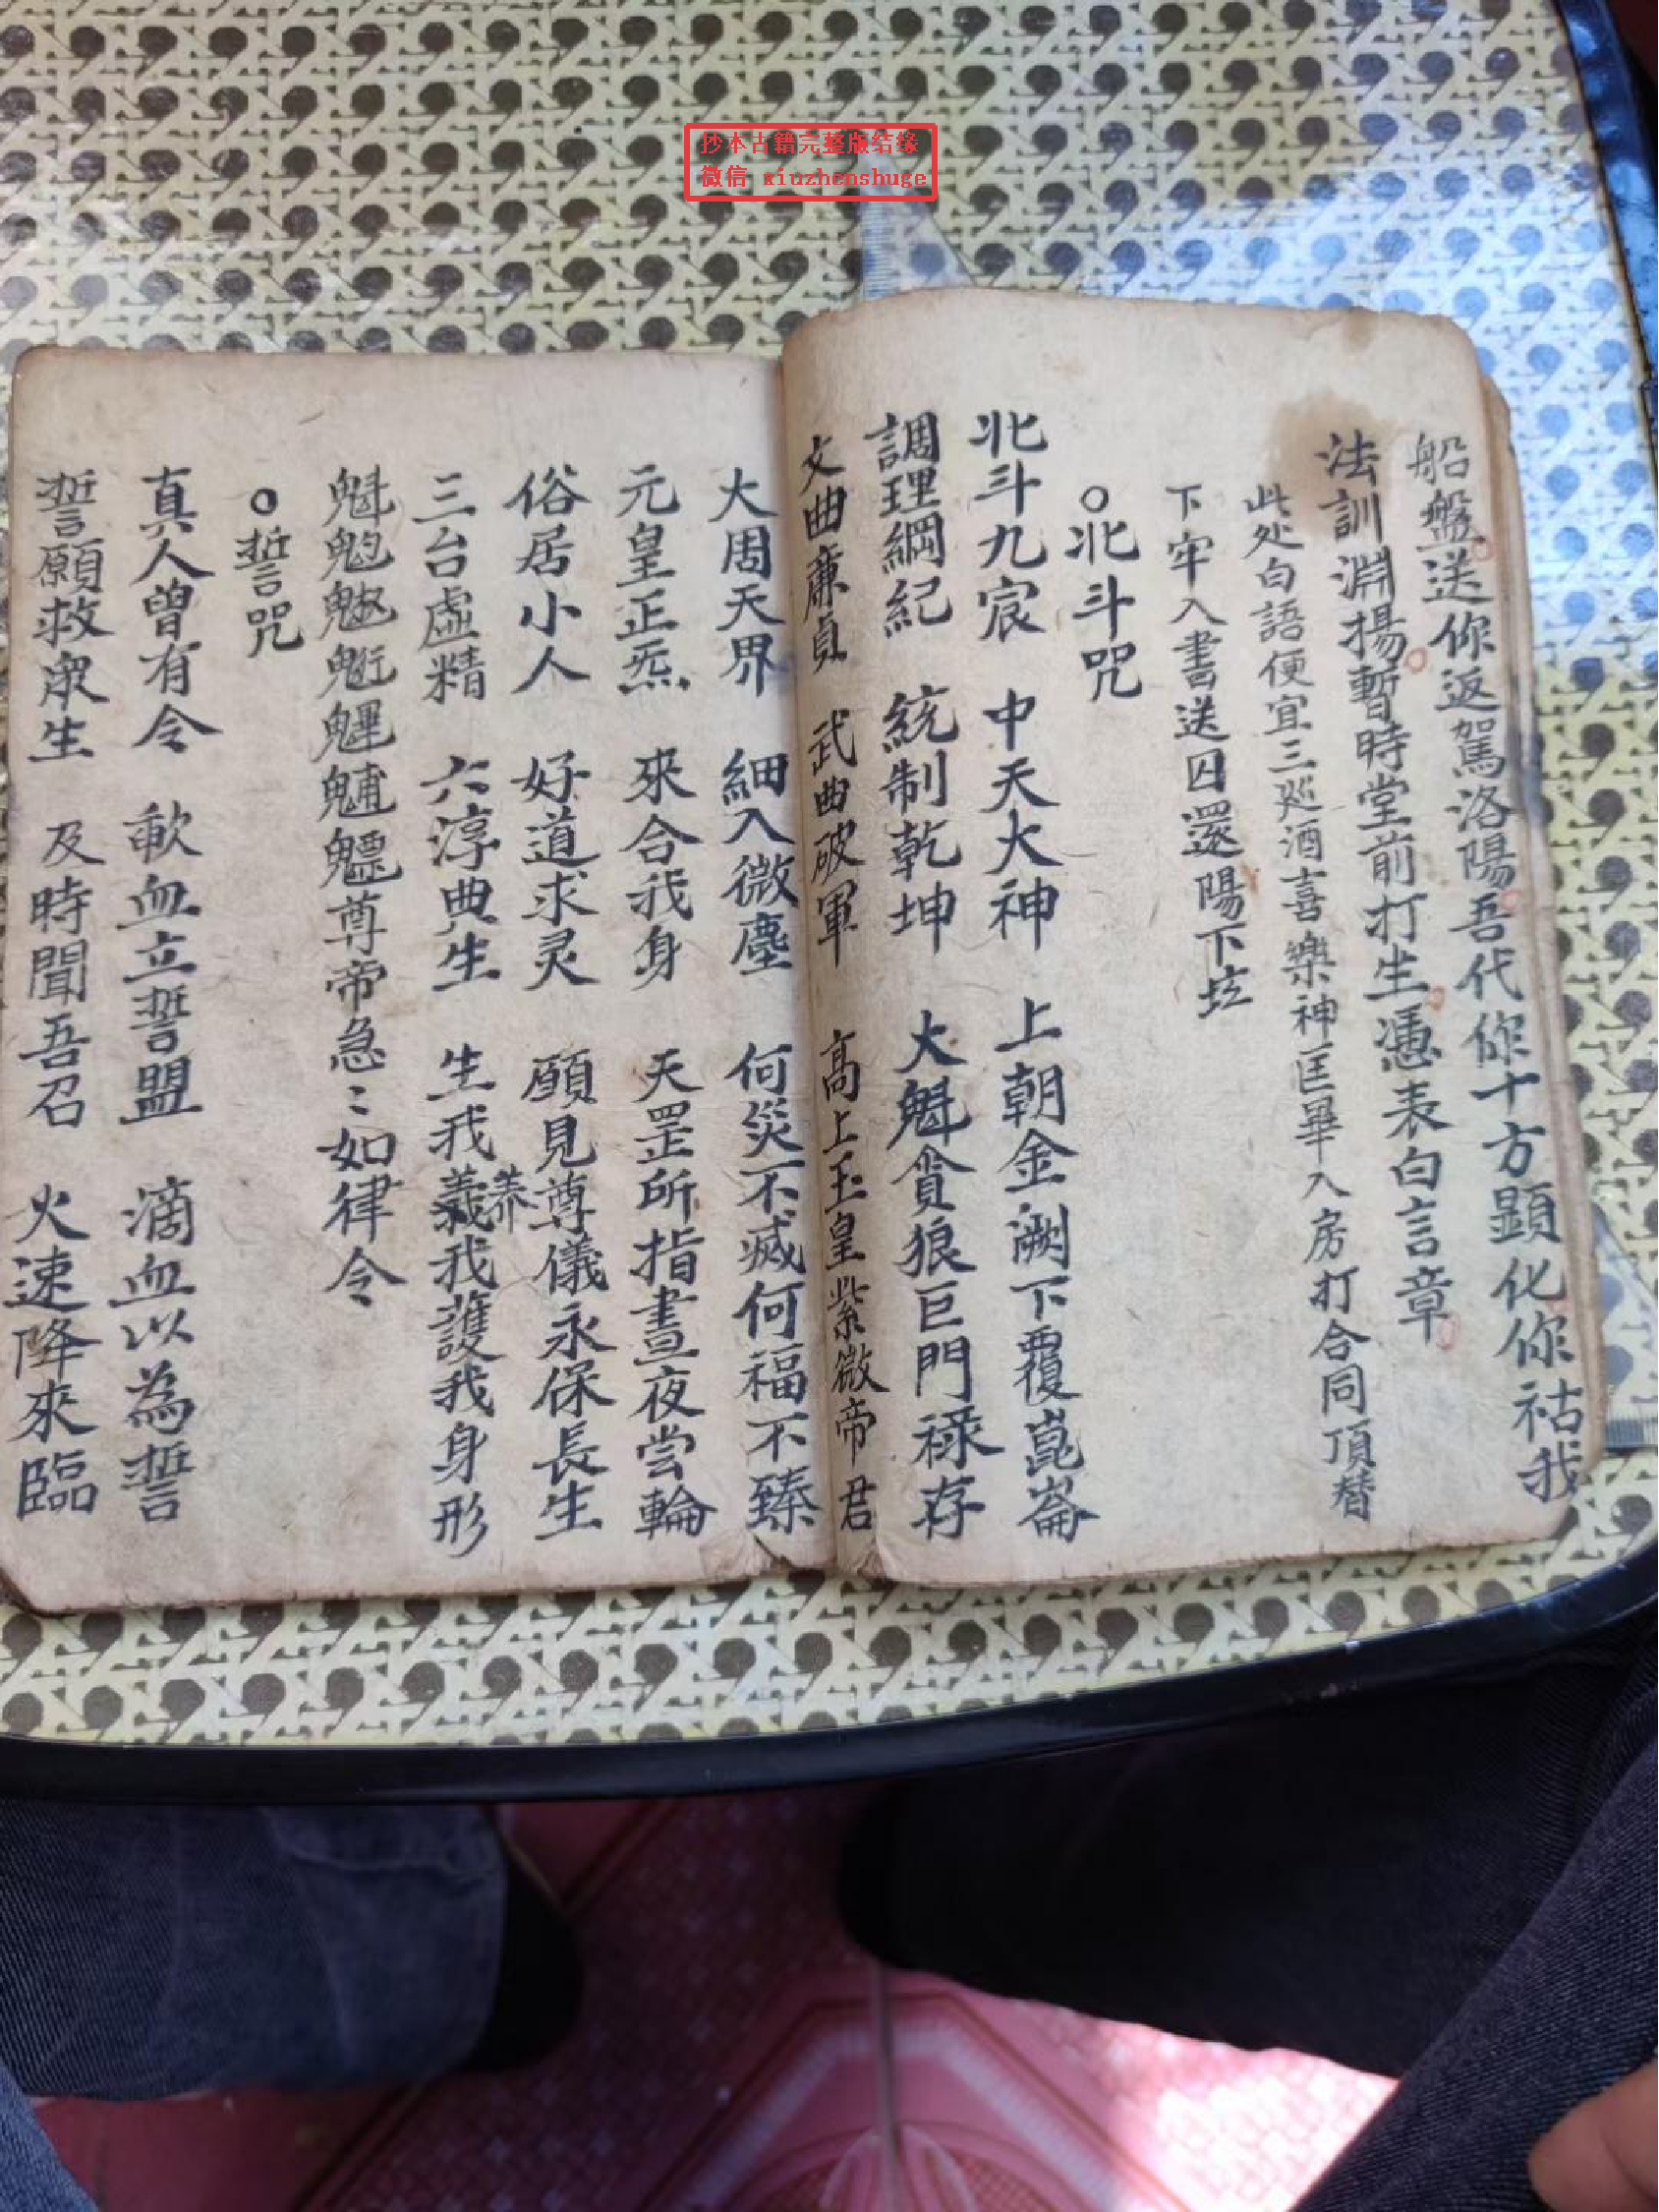 抄本古籍完整版结缘
微信 xiuzhenshuge
船盤送你返駕洛陽吾代你十方顕化你祜我
法訓淵揚暫時堂前打生憑表白言章
此处白語便宜三巡酒喜樂神匡畢入房打合同頂替
下牢入書送囚還陽下坛
○北斗咒
北斗九宸 中天大神 上朝金闕下覆崑崙
調理綱紀 統制乾坤 大魁貪狼巨門祿存
文曲廉貞 武曲破軍 高上玉皇紫微帝君
大周天界 細入微塵 何災不滅何福不臻
元皇正炁 來合我身 天罡所指晝夜尝輪
俗居小人 好道求灵 願見尊儀永保長生
三台虛精 六淳典生 生我養我護我身形
魁𩲃𩵄魓𩳐魖尊帝急〻如律令
○誓咒
真人曾有令 歃血立誓盟 滴血以為誓
誓願救眾生 及時聞吾召 火速降來臨